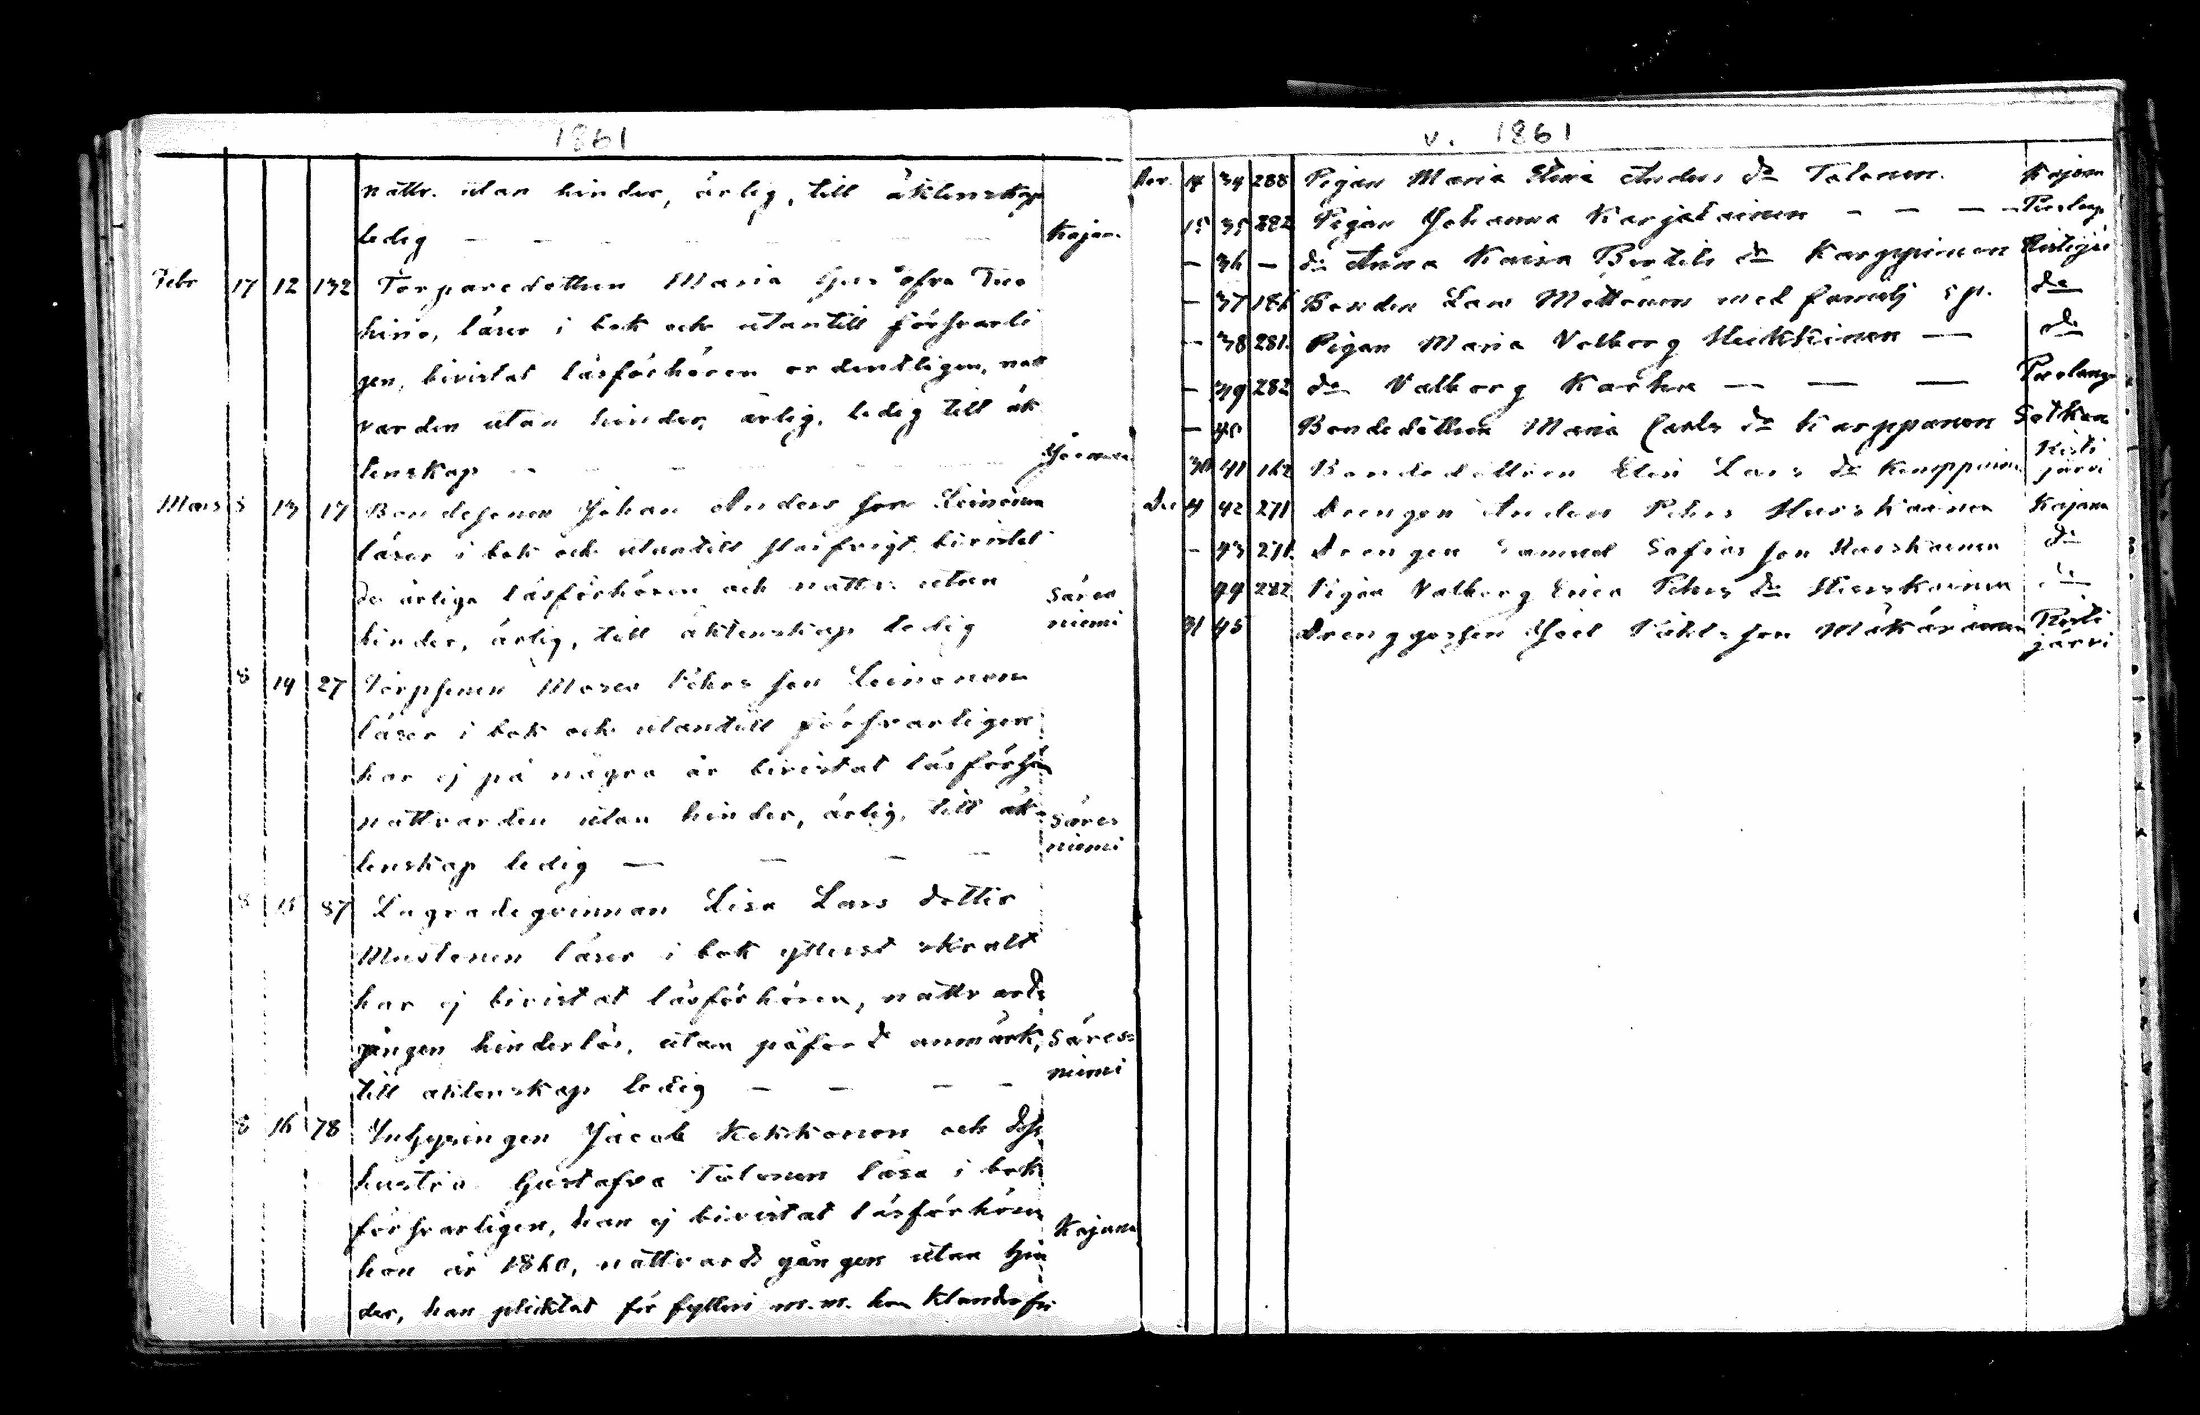 1861
nattv. utan hinder, ärlig, till äktenskap
ledig — — — — — — Kajana
Febr 17 12 132 Torparedottren Maria Gus
hino, läser i bok och utantill försvarli
gen, bivistat läsförhören ordentligen, natt
varden utan hinder, ärlig, ledig till äk
tenskap — — — —
Mars 5 13 17 Bondesonen Johan Anders son Leinonen
läser i bok och utantill bivistat
de årliga läsförhören och nattv. utan Säres
hinder, ärlig, till äktenskap ledig niemi
8 14 27 Torpsonen Petters son Leinonen
läser i bok och utantill försvarligen
har ej på några år bivistat läsförhör
nattvarden utan hinder, ärlig, till äk- Säres
tenskap ledig — — — — niemi
8 15 87 Lagradeqvinnan Lisa Lars dotter
Mustonen läser i bok ytterst skralt
har ej bivistat läsförhören, nattvards
gången hinderlös, utan påförd anmärk, Säres-
till äktenskap ledig — — — — niemi
8 16 78 Inhysingen Jacob Kekkonen och dess
hustru Gustafva Tolonen läsa i bok
försvarligen, han ej bivistat läsförhören
hon år 1860, nattvards gången utan hin Kajana
der, han pliktat för fylleri m.m. hon klanderfri
v. 1861
Nov. 14 34 288 Pigan Maria Stina Anders dr Tolonen. Kajana
15 35 282 Pigan Johanna Karjalainen — — —
— 36 — do Anna Kaisa Bertils dr Karppinen
— 37 186 Bonden Lars Mattonen med familj s.p. do
— 38 281 Pigan Maria Valborg Heikkinen — do
— 39 282 do Valborg Karhu — — — Puolanga
— 40 Bondedottren Maria Carls dr Karppanen Sotkamo
30 41 162 Bondedottren Elin Lars dr Kemppainen Risti järvi
Dec 4 42 271 Drengen Anders Petters Hurskainen Kajana
— 43 271 Drengen Samuel Safias son Hurskainen do
44 282 Pigan Valborg Erica Petters dr Hurskainen do
31 45 Drenggossen Joel Påhls son Määräinen Risti
järvi